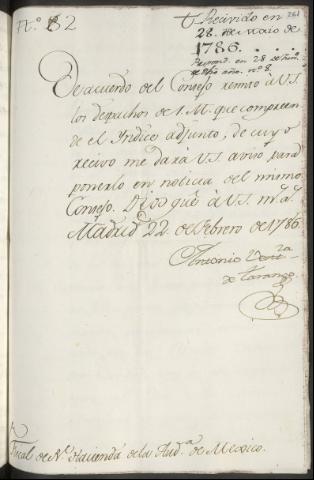 N.º 32
261
Recivido en
28. de Maio de
1786.
Respond. en 28 de
dho año. nº 8.
De acuerdo del Consejo remito à V.S.
los despachos de S. M. que comprende
el Yndice adjunto, de cuyo
recivo me dará V.S. aviso para
ponerlo en noticia del mismo
Consejo. Dios gue à V.S. m.s a.s
Madrid 22 de Febrero de 1786.
Antonio Vent.ra
de Taranco
Fiscal de R.l Hacienda de la Aud.a de Mexico.